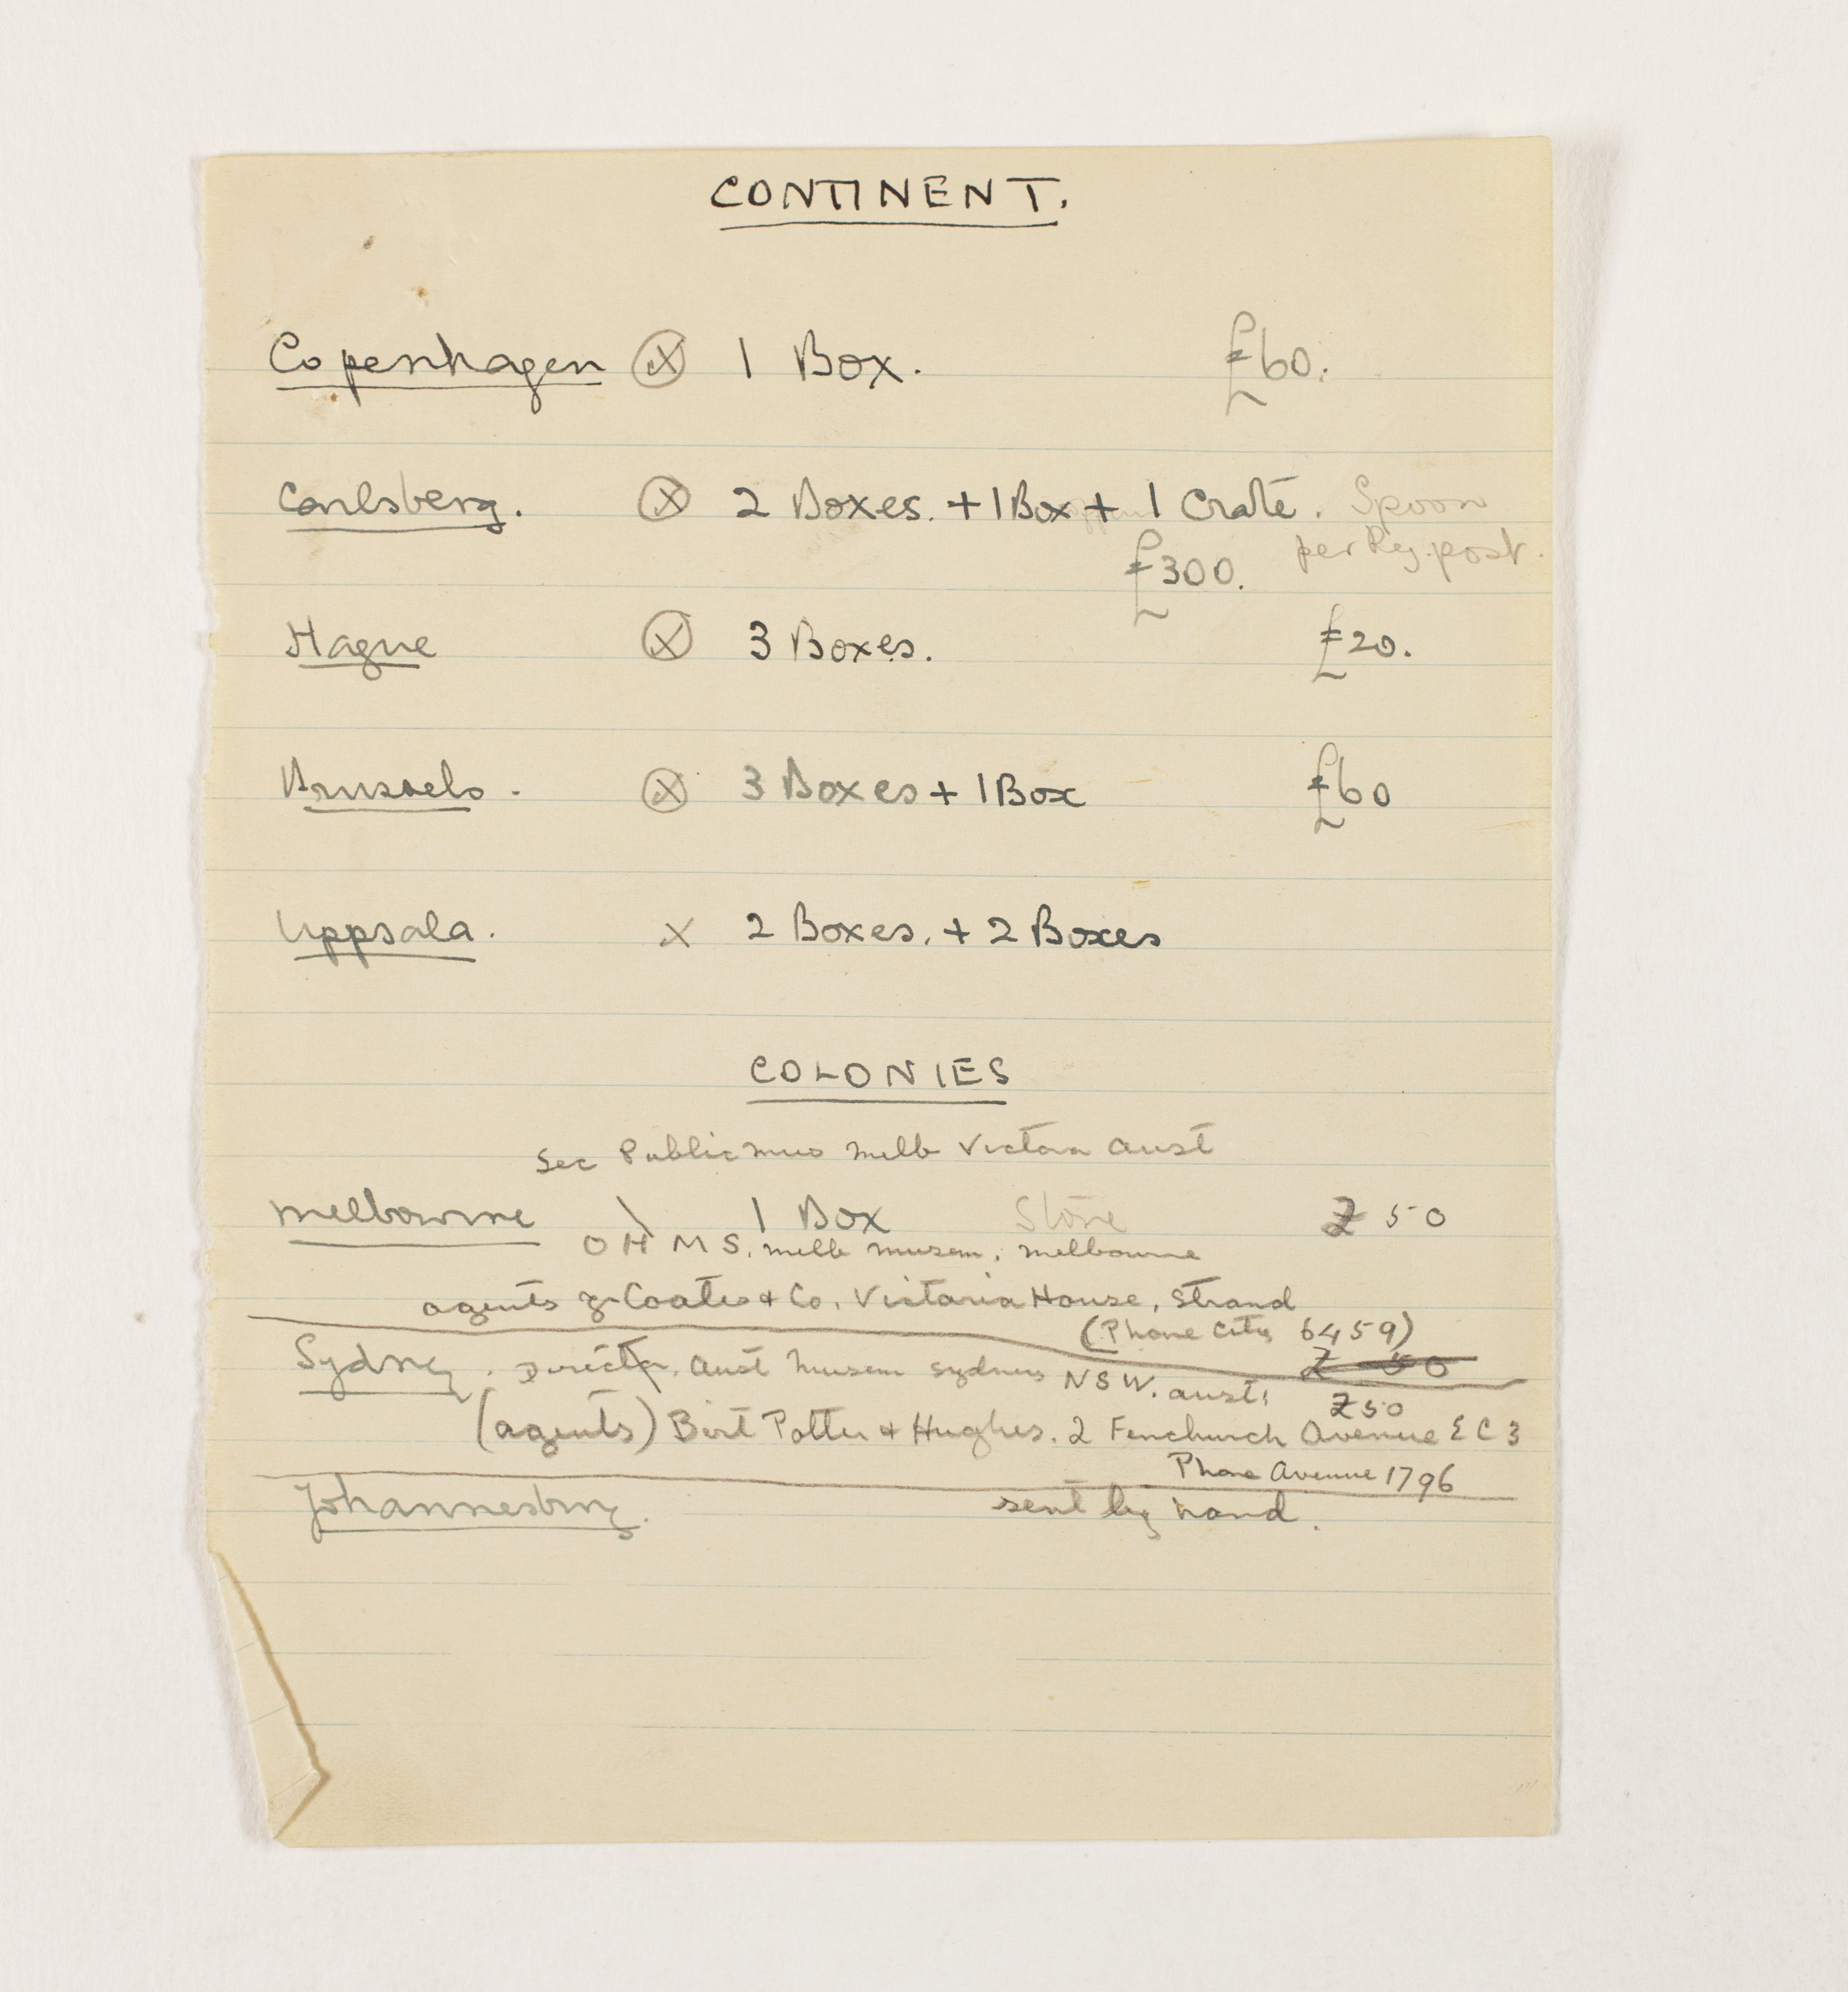 CONTINENT.
Copenhagen ⊗ 1 Box. £60.
Carlsberg. ⊗ 2 Boxes. + 1 Box + 1 Crate. Spoon
per Reg. post.
£300.
Hague ⊗ 3 Boxes. £20.
Brussels. ⊗ 3 Boxes + 1 Box £60
Uppsala. × 2 Boxes. + 2 Boxes
COLONIES
Sec Public Mus Melb Victoria Aust
Melbourne \ 1 Box Stone £ 50
O H M S. Melb Museum. Melbourne
agents Coates & Co. Victoria House, Strand
(Phone City 6459)
Sydney. Director, Aust Museum Sydney NSW. Aust. £ 50
£50
(agents) Birt Potter & Hughes. 2 Fenchurch Avenue E C 3
Phone Avenue 1796
Johannesburg. sent by hand.